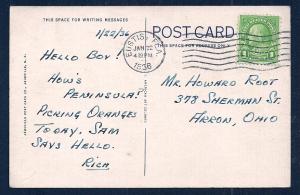 THIS SPACE FOR WRITING MESSAGES
POST CARD
THIS SPACE FOR ADDRESS ONLY
EUSTIS, FLA.
JAN 22
4 30 PM
1936
1/22/36
HELLO BOY!
HOW'S
PENINSULA?
PICKING ORANGES
TODAY. SAM
SAYS HELLO.
RICH
MR. HOWARD ROOT
378 SHERMAN ST.
AKRON, OHIO